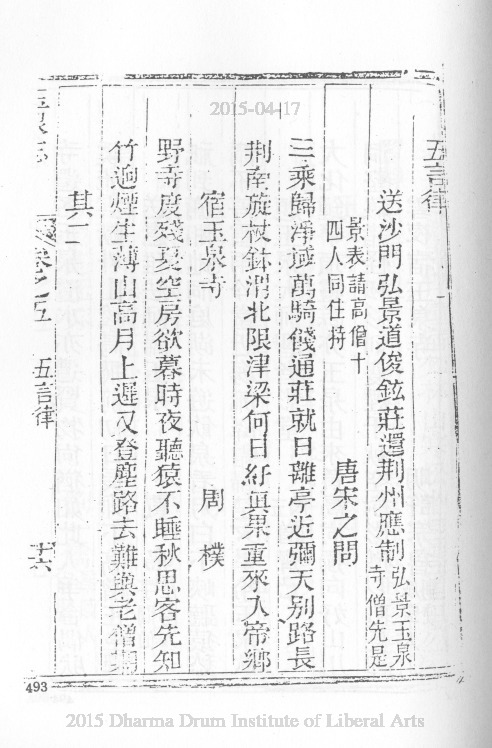 2015-04-17
五言律
送沙門弘景道俊鉉莊還荆州應制弘景玉泉寺僧先是
景表請高僧十四人同住持
唐宋之問
三乘歸淨域萬騎餞通莊就日離亭近彌天别路長
荆南旋杖鉢渭北限津梁何日紆真果重來入帝鄉
宿玉泉寺
周樸
野寺度殘夏空房欲暮時夜聽猿不睡秋思客先知
竹逈煙生薄山高月上遲又登塵路去難與老僧期
其二
玉泉志
卷之五
五言律
十六
493
2015 Dharma Drum Institute of Liberal Arts